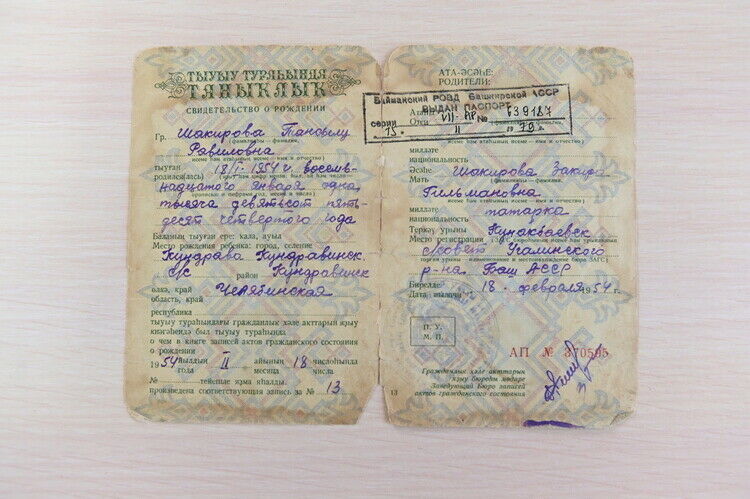 ТЫУЫУ ТУРАҺЫНДА
ТАНЫКЛЫК
СВИДЕТЕЛЬСТВО О РОЖДЕНИИ
Гр. Шакирова Танзылу
(фамилияһы — фамилия,
Равиловна
исеме һәм атаһының исеме — имя и отчество)
тыуған 18/I-1954 г. восем-
родился(лась)
надцатого января одна
тысяча девятьсот пять-
десят четвертого года
Баланың тыуған ере: ҡала, ауыл
Место рождения ребенка: город, селение
Кундрава Кундравинск.
с/с район Кундравинск
өлкә, край Челябинская
область, край
республика
тыуыу тураһындағы граждандыҡ хәле акттарын яҙыу
кенәгәһендә был тыуыу тураһында
о чем в книге записей актов гражданского состояния
о рождении
1954 йылдың II айының 18 числоһында
года месяца числа
№ тейешле яҙма яһалды.
произведена соответствующая запись за № 13
АТА-ӘСӘҺЕ:
РОДИТЕЛИ:
Баймакский РОВД Башкирской АССР
ВЫДАН ПАСПОРТ
Отец
серии VII-АР № 539187
15 II 1979 г.
исеме һәм атаһының исеме — имя и отчество)
милләте
национальность
Әсәһе Шакирова Закира
Мать
Гильмановна
исеме һәм атаһының исеме — имя и отчество)
милләте татарка
национальность
Теркәү урыны Кунакбаевск.
Место регистрации
с/совет Учалинского
р-на Баш АССР
Бирелде 18 февраля 1954 г.
Дата выдачи
П. У.
М. П.
АП № 370595
Граждандыҡ хәле акттарын
яҙыу бюроһы мөдире
Заведующий Бюро записей
актов гражданского состояния
13